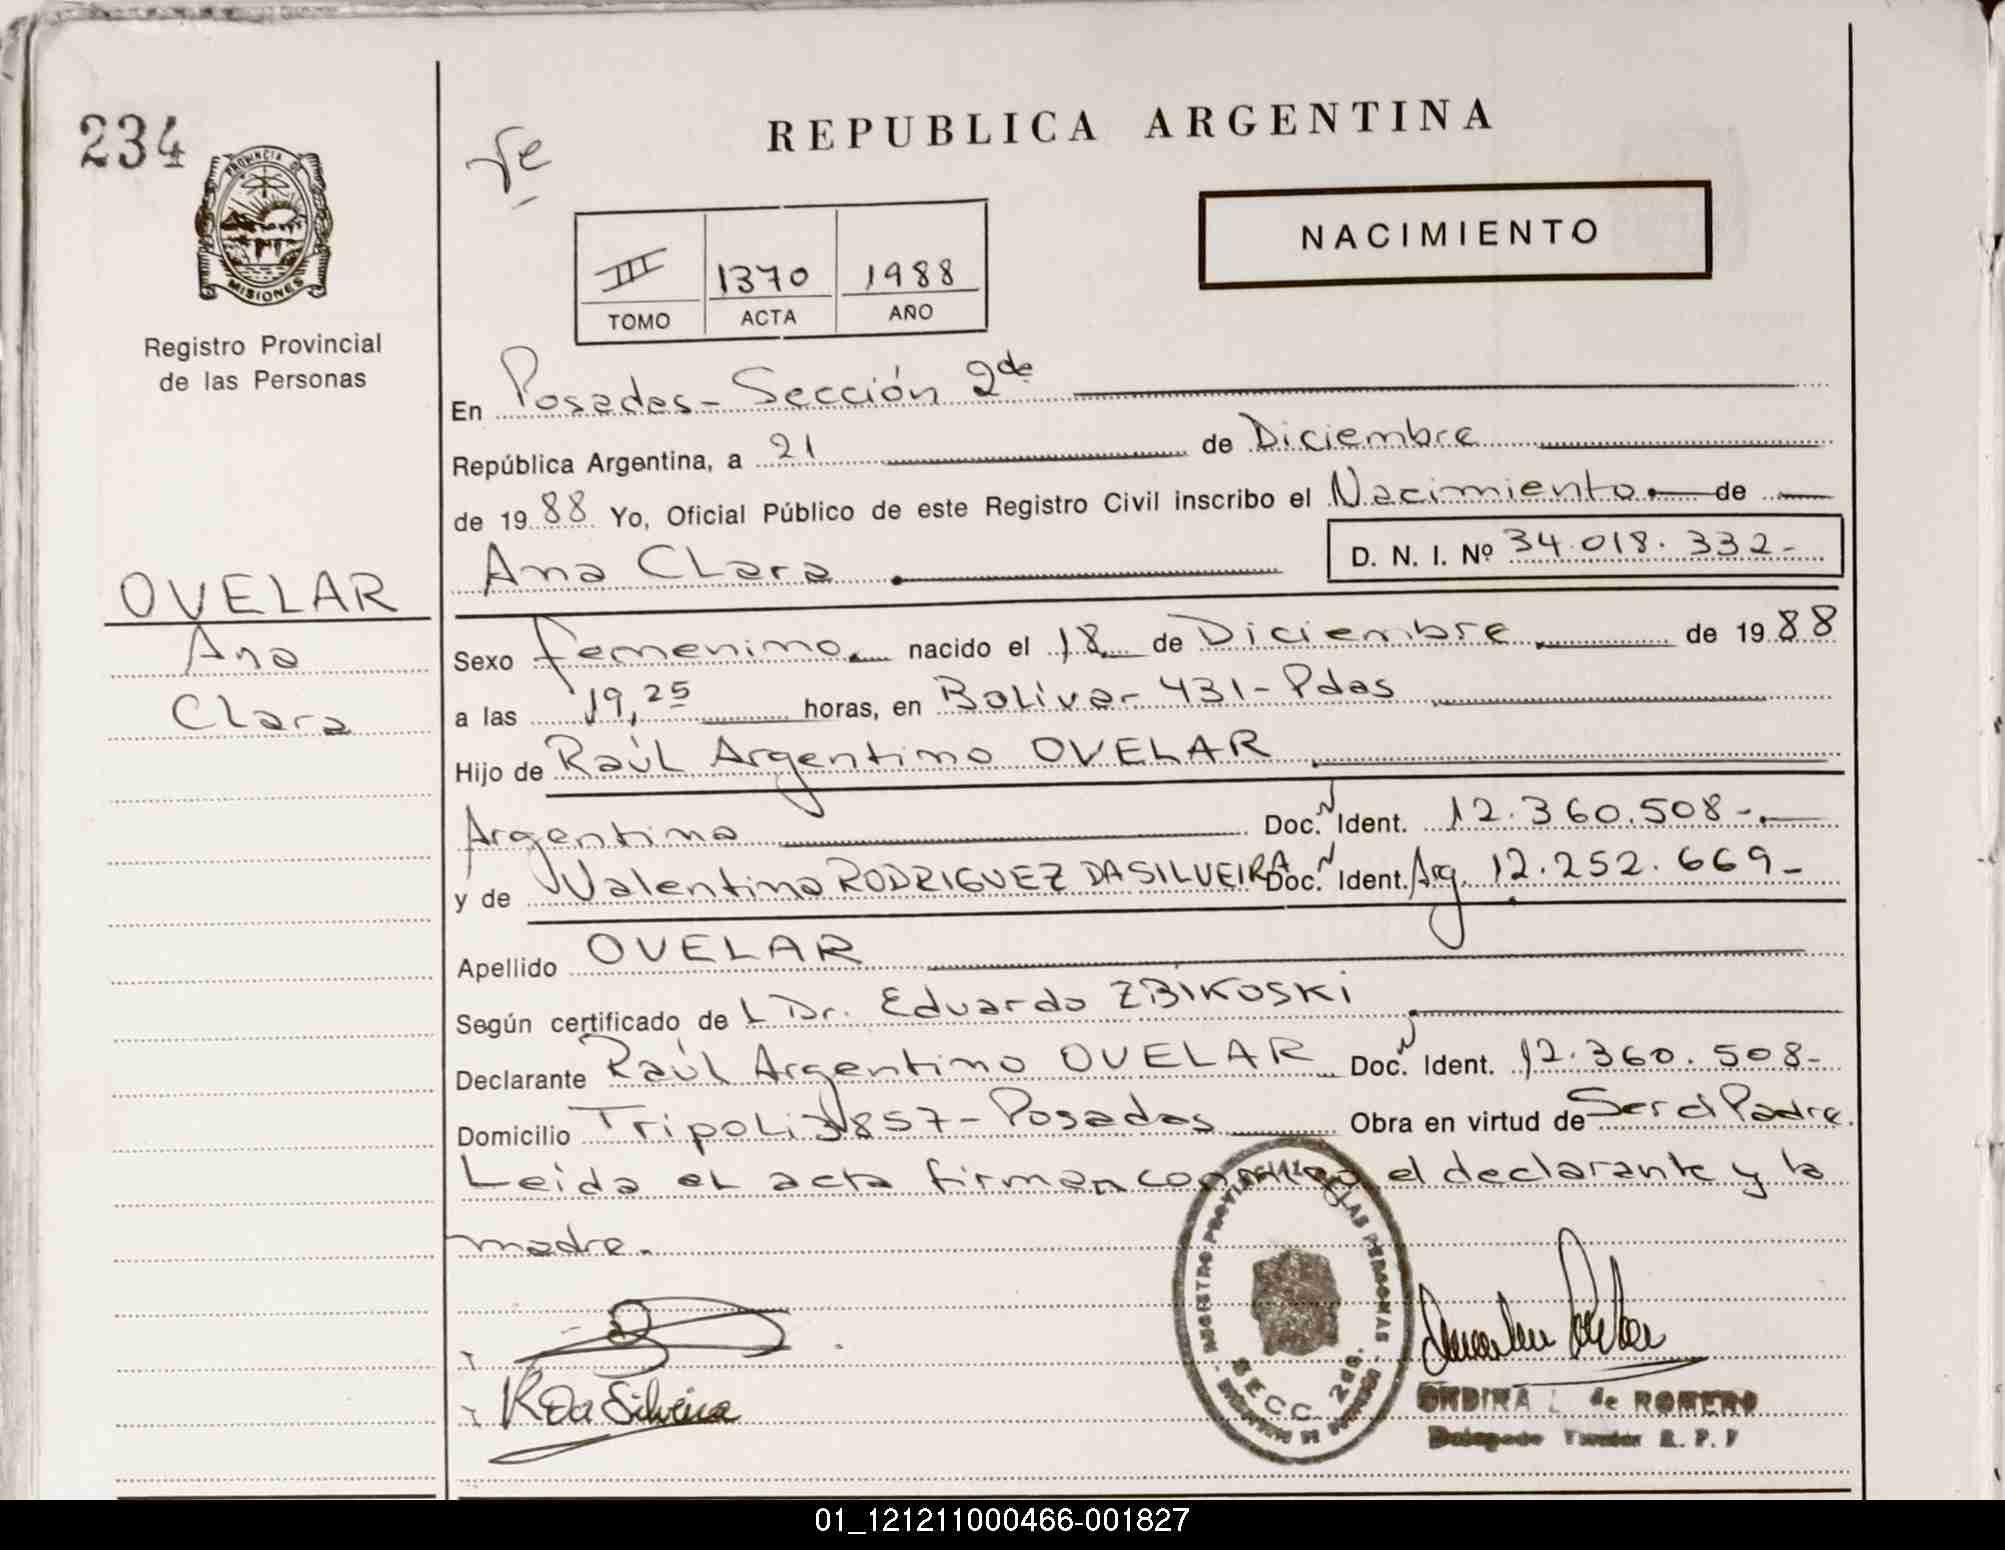 234
PROVINCIA DE
MISIONES
Registro Provincial
de las Personas
OVELAR
Ana
Clara
REPUBLICA ARGENTINA
NACIMIENTO
III 1370 1988
TOMO ACTA AÑO
En Posadas - Sección 2da
República Argentina, a 21 de Diciembre
de 19 88 Yo, Oficial Público de este Registro Civil inscribo el Nacimiento de
Ana Clara D. N. I. Nº 34.018.332-
Sexo femenino nacido el 18 de Diciembre de 19 88
a las 19,25 horas, en Bolívar 431 - Pdas
Hijo de Raúl Argentino OVELAR
Argentino Doc. Ident. 12.360.508-
y de Valentina RODRIGUEZ DASILVEIRA Doc. Ident. Arg. 12.252.669-
Apellido OVELAR
Según certificado de L Dr. Eduardo ZBIKOSKI
Declarante Raúl Argentino OVELAR Doc. Ident. 12.360.508-
Domicilio Tripoli 3857 - Posadas Obra en virtud de Ser el Padre.
Leida el acta firman conmigo el declarante y la
madre.
REGISTRO PROVINCIAL DE LAS PERSONAS
SECC. 2da.
R Da Silveira
ONDINA L. de ROMERO
R. P. P
01_121211000466-001827